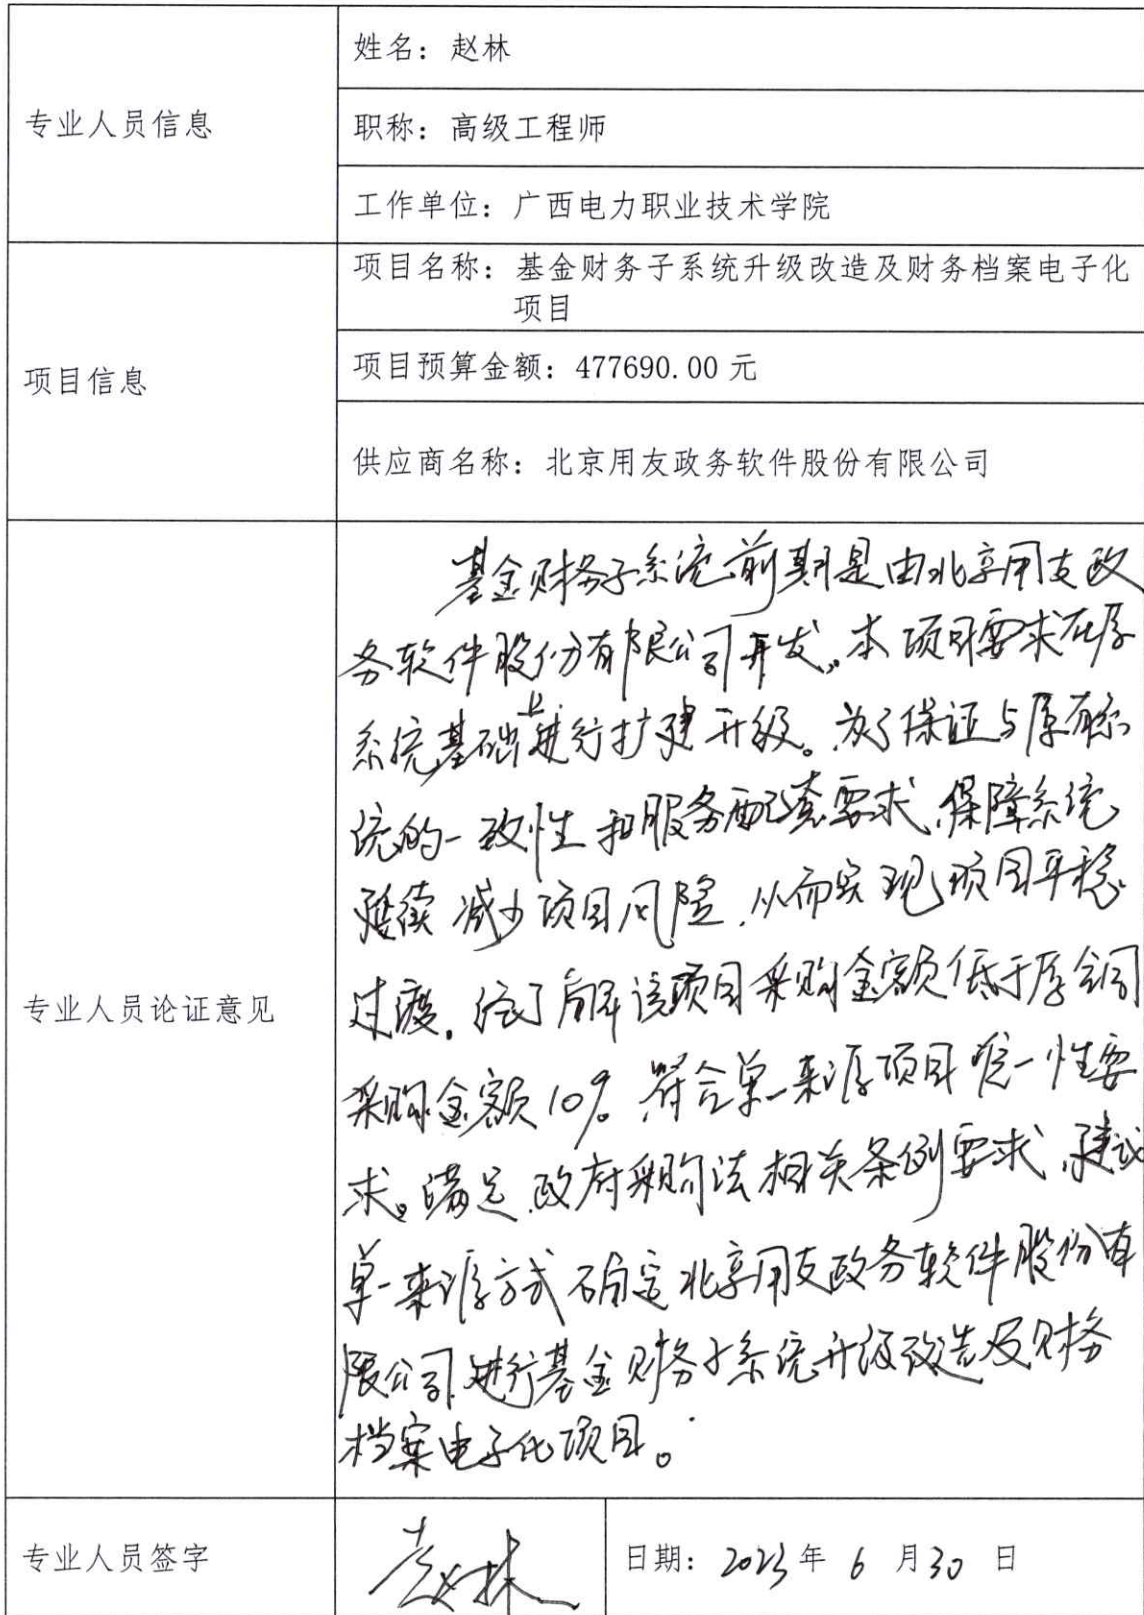 专业人员信息
姓名：赵林
职称：高级工程师
工作单位：广西电力职业技术学院
项目信息
项目名称：基金财务子系统升级改造及财务档案电子化
项目
项目预算金额：477690.00 元
供应商名称：北京用友政务软件股份有限公司
专业人员论证意见
基金财务子系统前期是由北京用友政
务软件股份有限公司开发。本项目要求在原
系统基础上进行扩建升级。为了保证与原有系
统的一致性和服务配套要求，保障系统
延续 减少项目风险，从而实现项目平稳
过渡。经了解该项目采购金额低于原合同
采购金额10% 符合单一来源项目唯一性要
求。满足政府采购法相关条例要求，建议
单一来源方式确定北京用友政务软件股份有
限公司进行基金财务子系统升级改造及财务
档案电子化项目。
专业人员签字
赵林
日期：2023年 6 月30 日